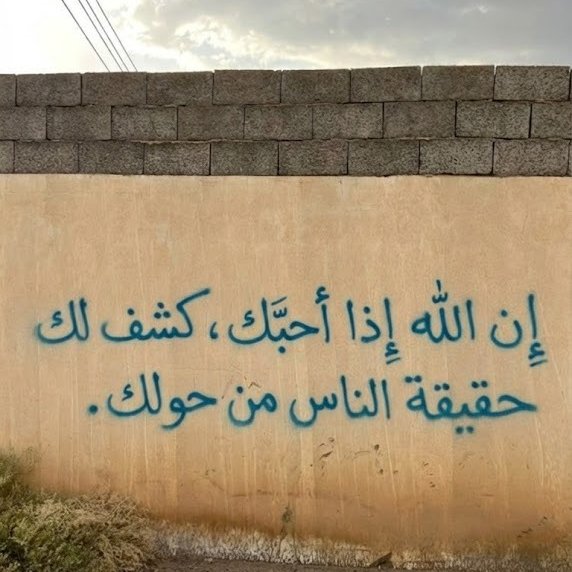 إِن الله إِذا أحبَّك، كشف لك
حقيقة الناس من حولك.